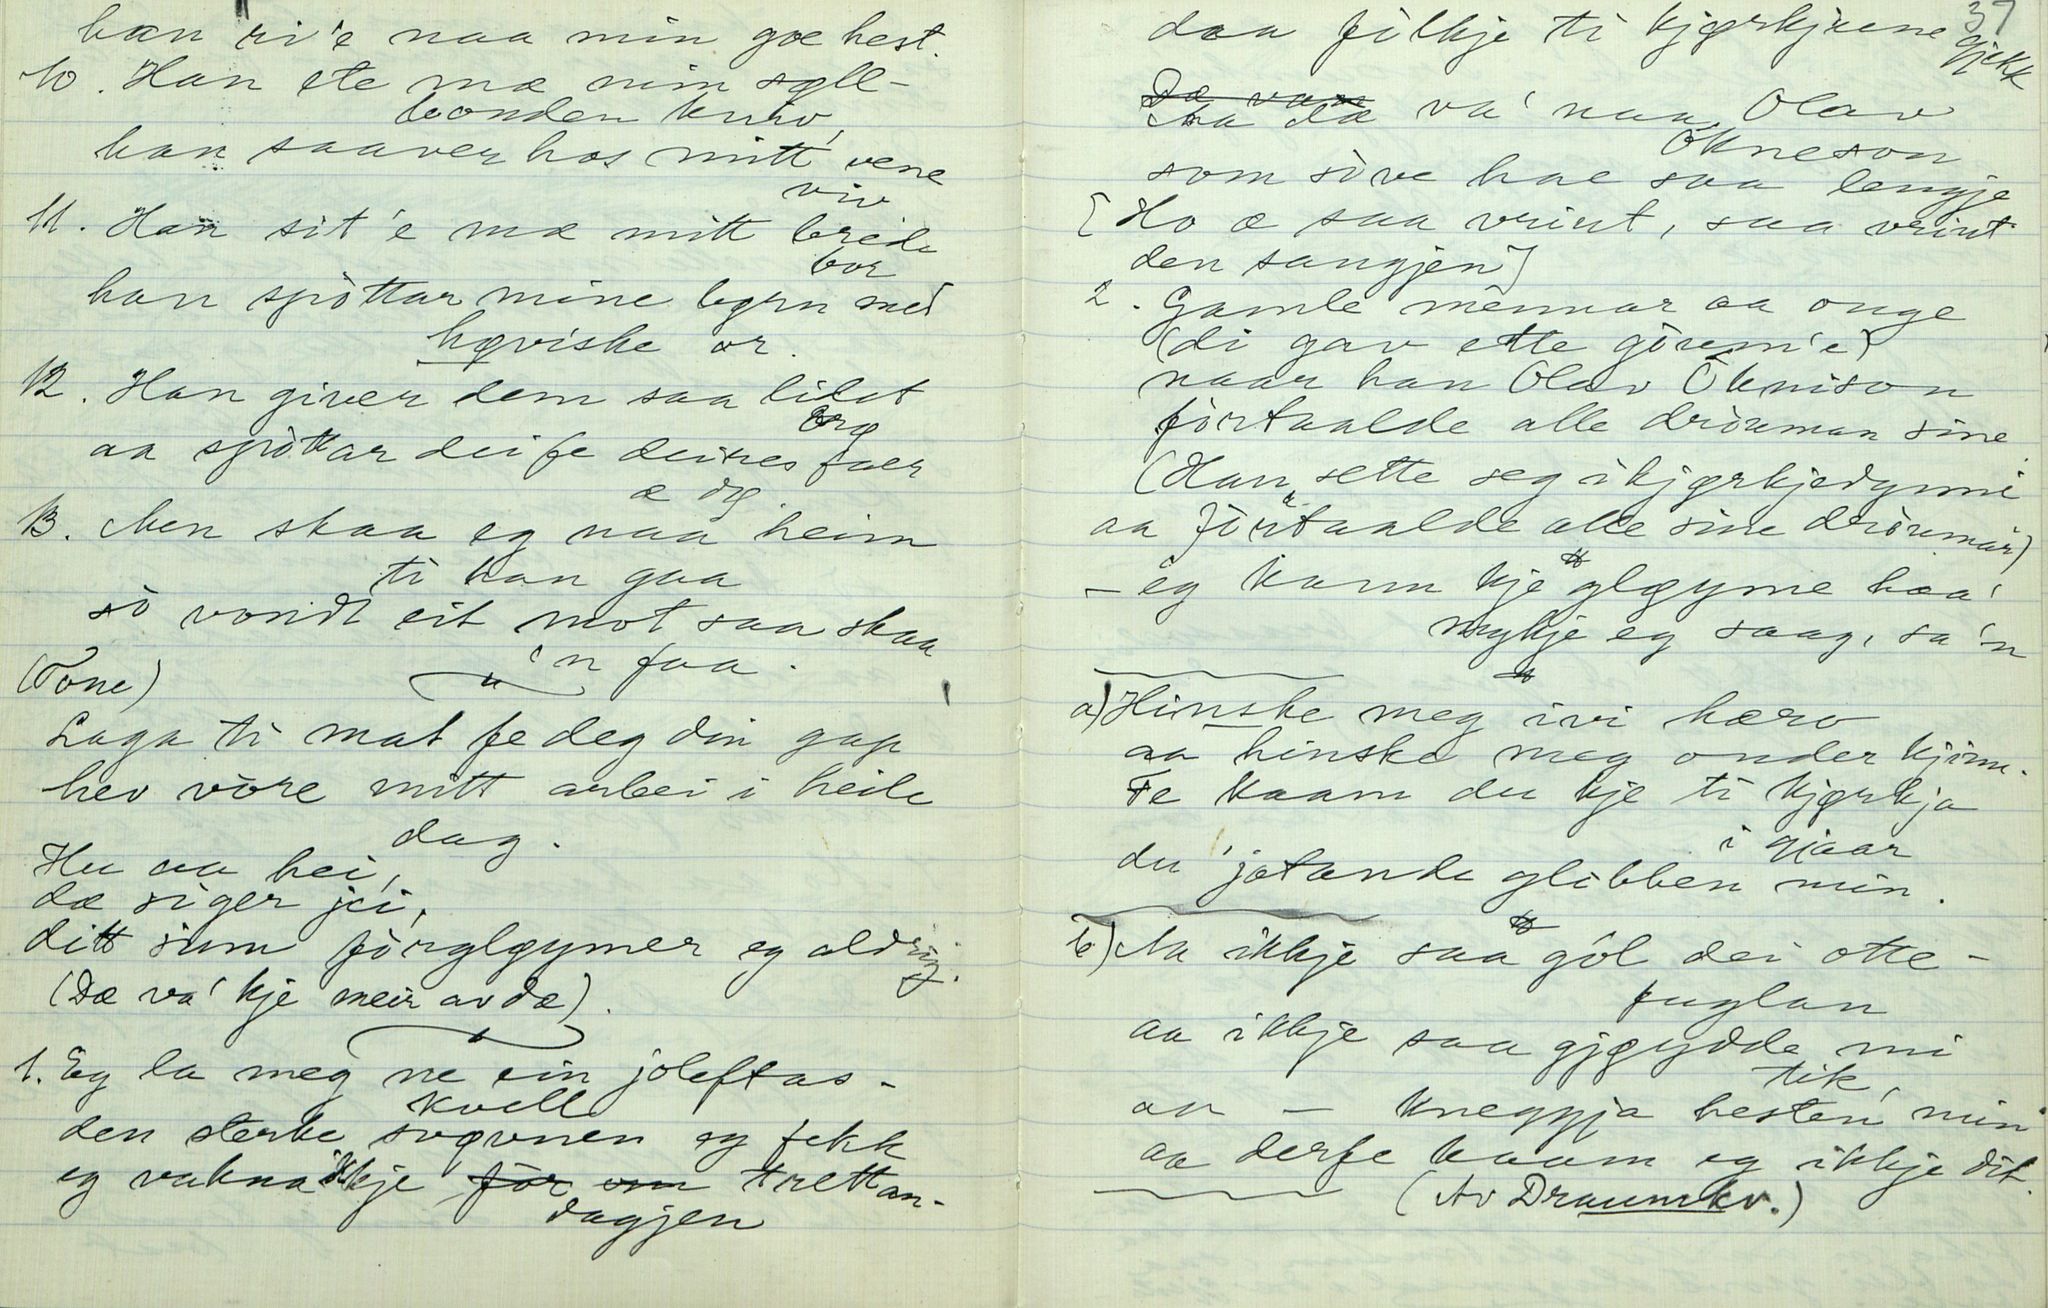 han ri'e naa min goe hest.
10. Han ete mæ min søll-
bonden kniv,
han saaver hos mitt vene
viv
11. Han sit'e mæ mitt breide
bor
han spòttar mine børn med
høviske or.
12. Han giver dem saa lidet
brø
aa spòttar dei fe deires faer
æ dø.
13. Men skaa eg naa heim
ti han gaa
sò vondt eit mot saa skaa
'n faa.
(Tone)
Laga ti mat fe deg din gap
hev vòre mitt arbei i heile
dag.
Hu aa hei,
dæ siger jei,
ditt sinn fòrgløymer eg aldrig.
(Dæ va' kje meir av dæ).
1. Eg la meg ne ein joleftas-
kvell
den sterke svøvnen eg fekk
eg vakna ikkje fòr om trettan-
dagjen
37
daa fólkje ti kjørkjune
gjekk
Dæ var
Aa dæ va' naa Olav
Òkneson
som sòve hae saa lengje
[Ho æ saa vrient, saa vrient
den sangjen]
2. Gamle mennar aa onge
(di gav ette gòvem'e)
naar han Olav Òknison
fòrtaalde alle dròuman sine.
(Han sette seg i kjørkjedynni
aa fòrtaalde alle sine dròumar)
- eg kann kje gløyme haa'
mykje eg saag, sa 'n
a) Hinske meg ivi hærv
aa hinske meg onder kjinn.
Fe kaam du kje ti kjørkja
i gjaar
du 'jatande glibben min.
b) Aa ikkje saa gól dei otte-
fuglan
aa ikkje saa gjøydde mi
tik,
aa - kneggja hesten min
aa derfe kaam eg ikkje dit.
(Av Draumkv.)